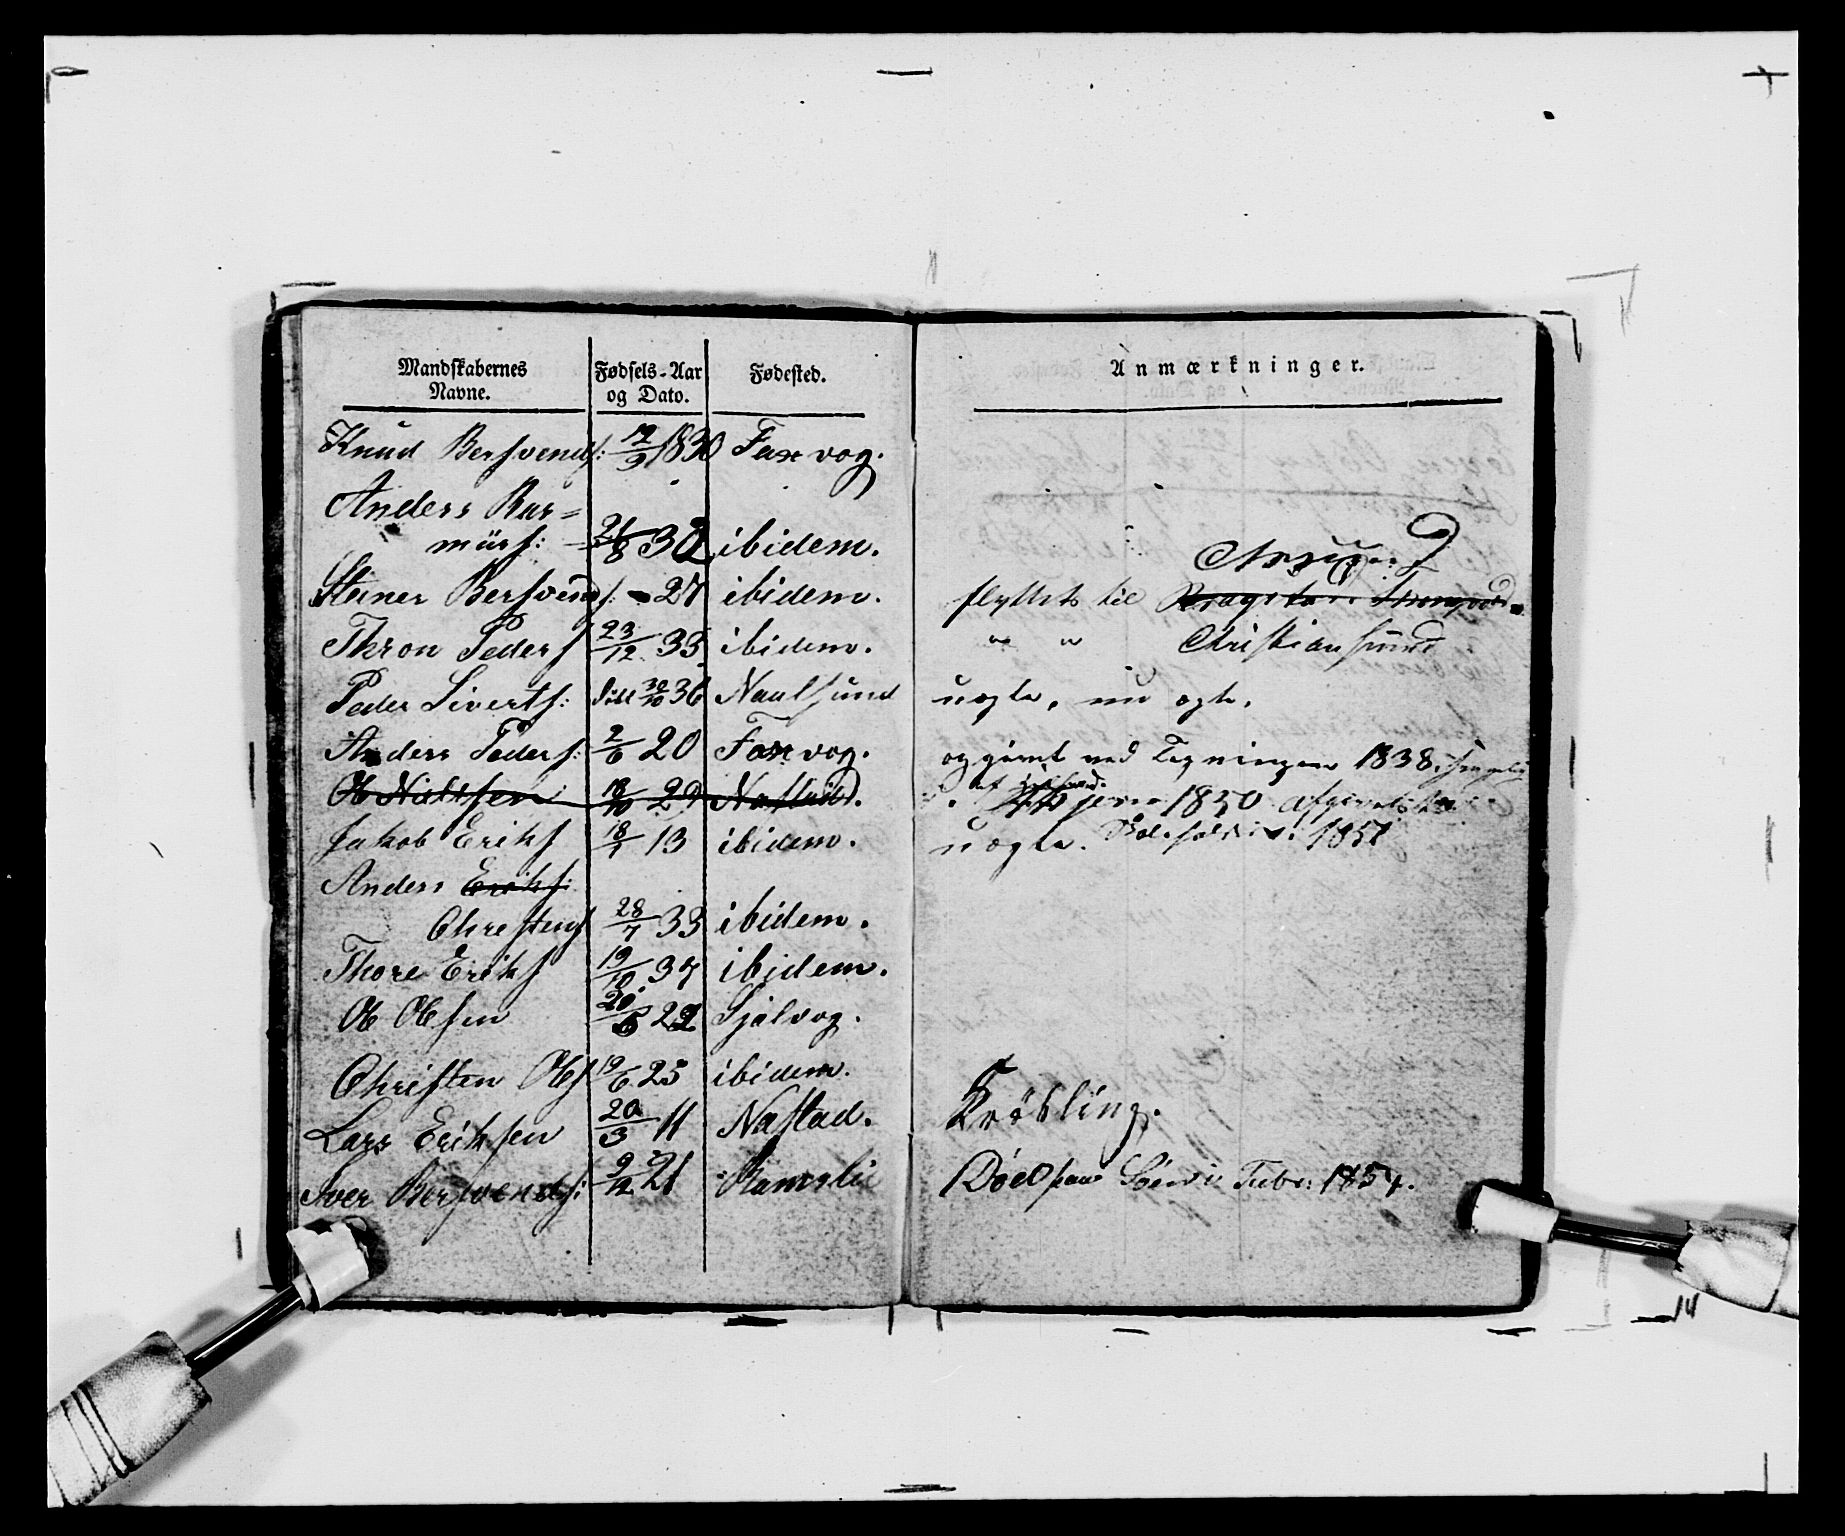 Mandskabernes
Navne.
Fødsels-Aar
og Dato.
Fødested.
Knud Bersvends: 12/9 1830 Faxvog.
Anders Ras=
müss: 21/8 30 ibidem.
Steiner Bersvends: - 27 ibidem.
Thron Peders 23/12 33 ibidem.
Peder Siverts: 30/10 36 Naulsund
Anders Peders: 2/6 20 Faxvog.
Ole Nielsen 18/10 29 Nastad.
Jakob Eriks 18/1 13 ibidem.
Anders Eriks:
Christens 28/7 33 ibidem.
Thore Eriks 19/10 37 ibidem.
Ole Olsen 20/5 22 Gjølvog.
Christen Ols 19/6 25 ibidem.
Lars Eriksen 20/3 11 Nastad.
Iver Bersvends: 9/12 21 Ramslie
Anmærkninger.
flyttet til
" " Christiansund
uægte, nu ægte.
opgivet ved Tegningen 1838.
1850 afgivet
uægte. 1851
Krøbling.
Død paa Søen i Febr: 1854.
14